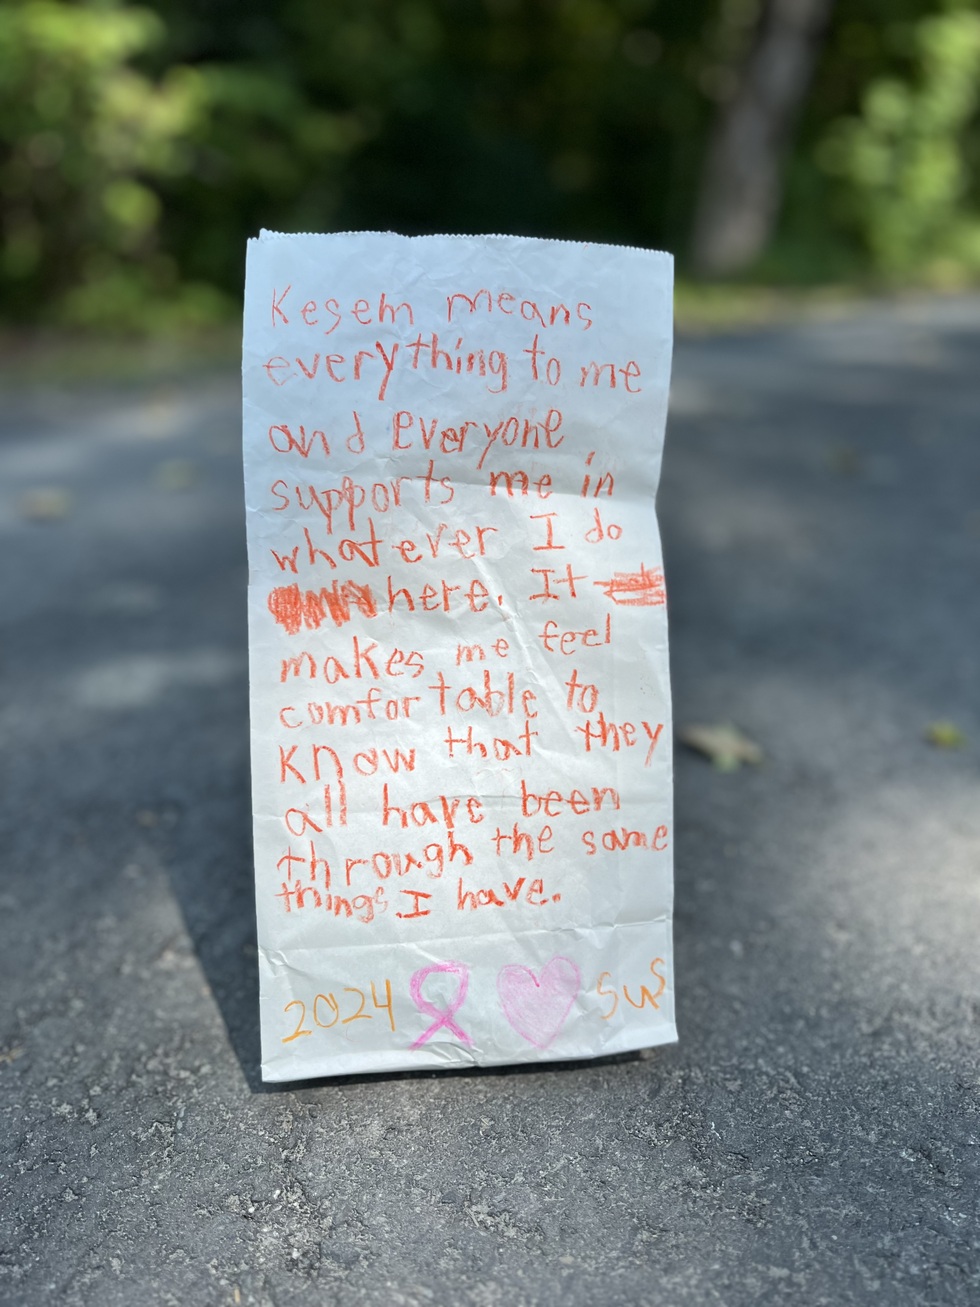 Kesem means
everything to me
and everyone
supports me in
whatever I do
here. It
makes me feel
comfortable to
know that they
all have been
through the same
things I have.
2024 sus